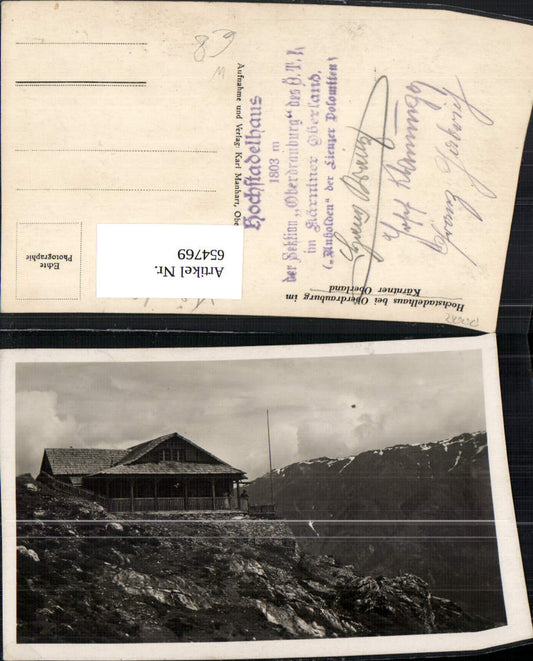 Hochstadelhaus bei Oberdrauburg im
Kärntner Oberland
Hochstadelhaus
1803 m
der Sektion „Oberdrauburg“ des Ö. T. K.
im Kärntner Oberland.
(„Unholden“ der Lienzer Dolomiten)
Aufnahme und Verlag: Karl Manhart, Obe
Echte
Photographie
Artikel Nr.
654769